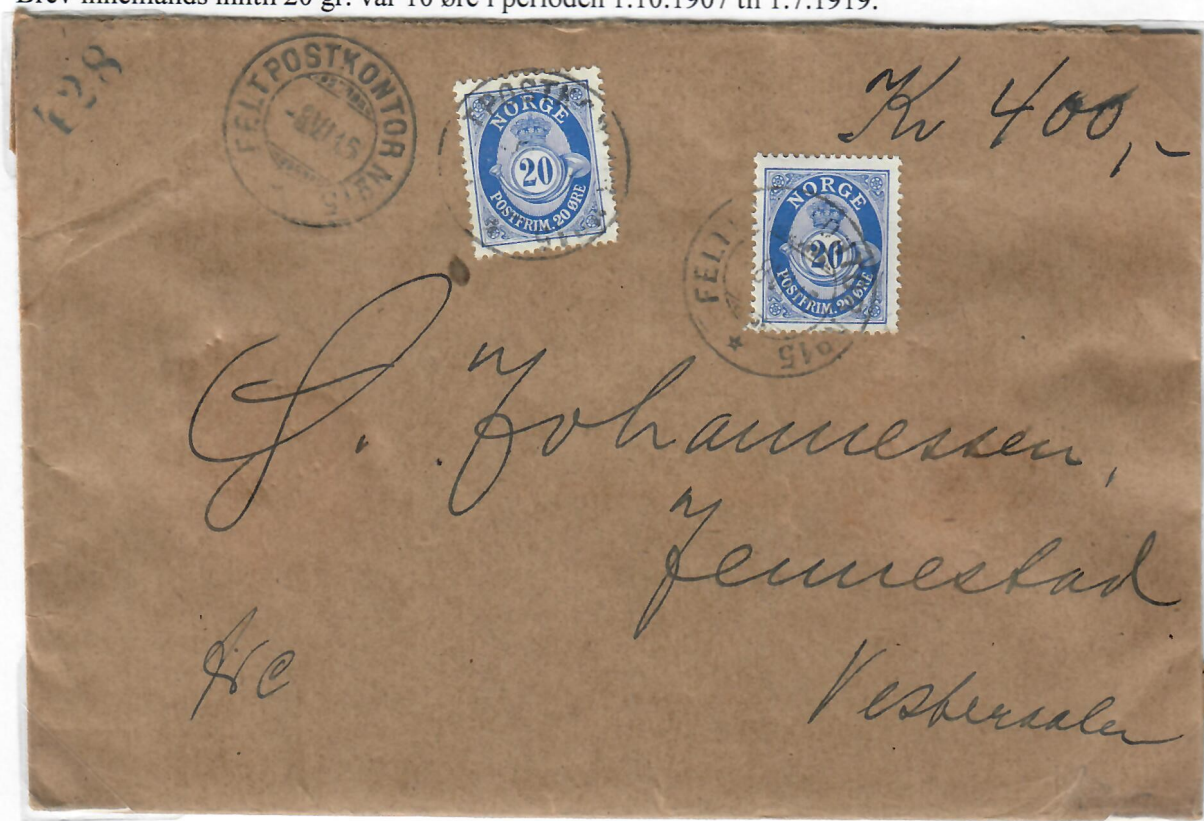 Brev innenlands inntil 20 gr. var 10 øre i perioden 1.10.1907 til 1.7.1919.
428
FELTPOSTKONTOR No 15
-8 VII 15
NORGE
20
POSTFRIM. 20 ØRE
Kr 400,-
NORGE
20
POSTFRIM. 20 ØRE
FELT
1915
S. Johannessen,
Jennestad
Vesteraalen